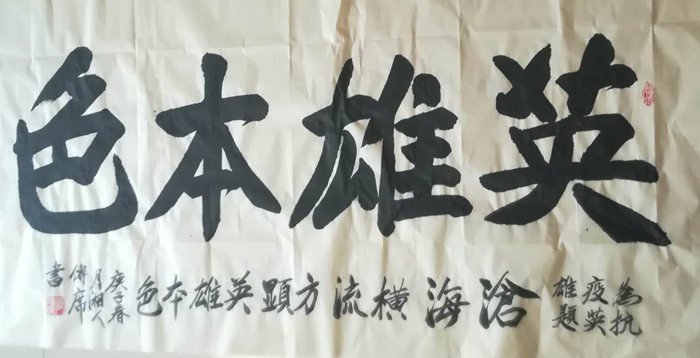 英雄本色
為抗
疫英
雄題
滄海橫流方顯英雄本色
庚子春
月湘人
傅席
書